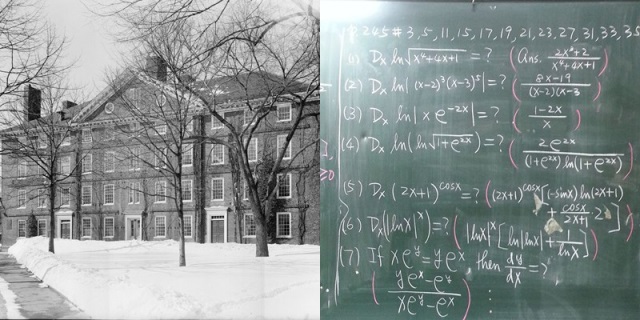 P. 245 # 3, 5, 11, 15, 17, 19, 21, 23, 27, 31, 33, 35
(1) Dx ln√(x⁴+4x+1) = ? (Ans. (2x³+2)/(x⁴+4x+1))
(2) Dx ln|(x-2)³(x-3)⁵| = ? ((8x-19)/((x-2)(x-3)
(3) Dx ln|x e^(-2x)| = ? ((1-2x)/x)
(4) Dx ln(ln√(1+e^(2x))) = ? (2e^(2x)/((1+e^(2x)) ln(1+e^(2x))))
(5) Dx (2x+1)^(cosx) = ? ((2x+1)^(cosx) [(-sinx) ln(2x+1) + cosx/(2x+1) · 2])
(6) Dx(|lnx|^x) = ? (|lnx|^x [ln|lnx| + 1/lnx])
(7) If xe^y = ye^x, then dy/dx = ?
((ye^x - e^y)/(xe^y - e^x))